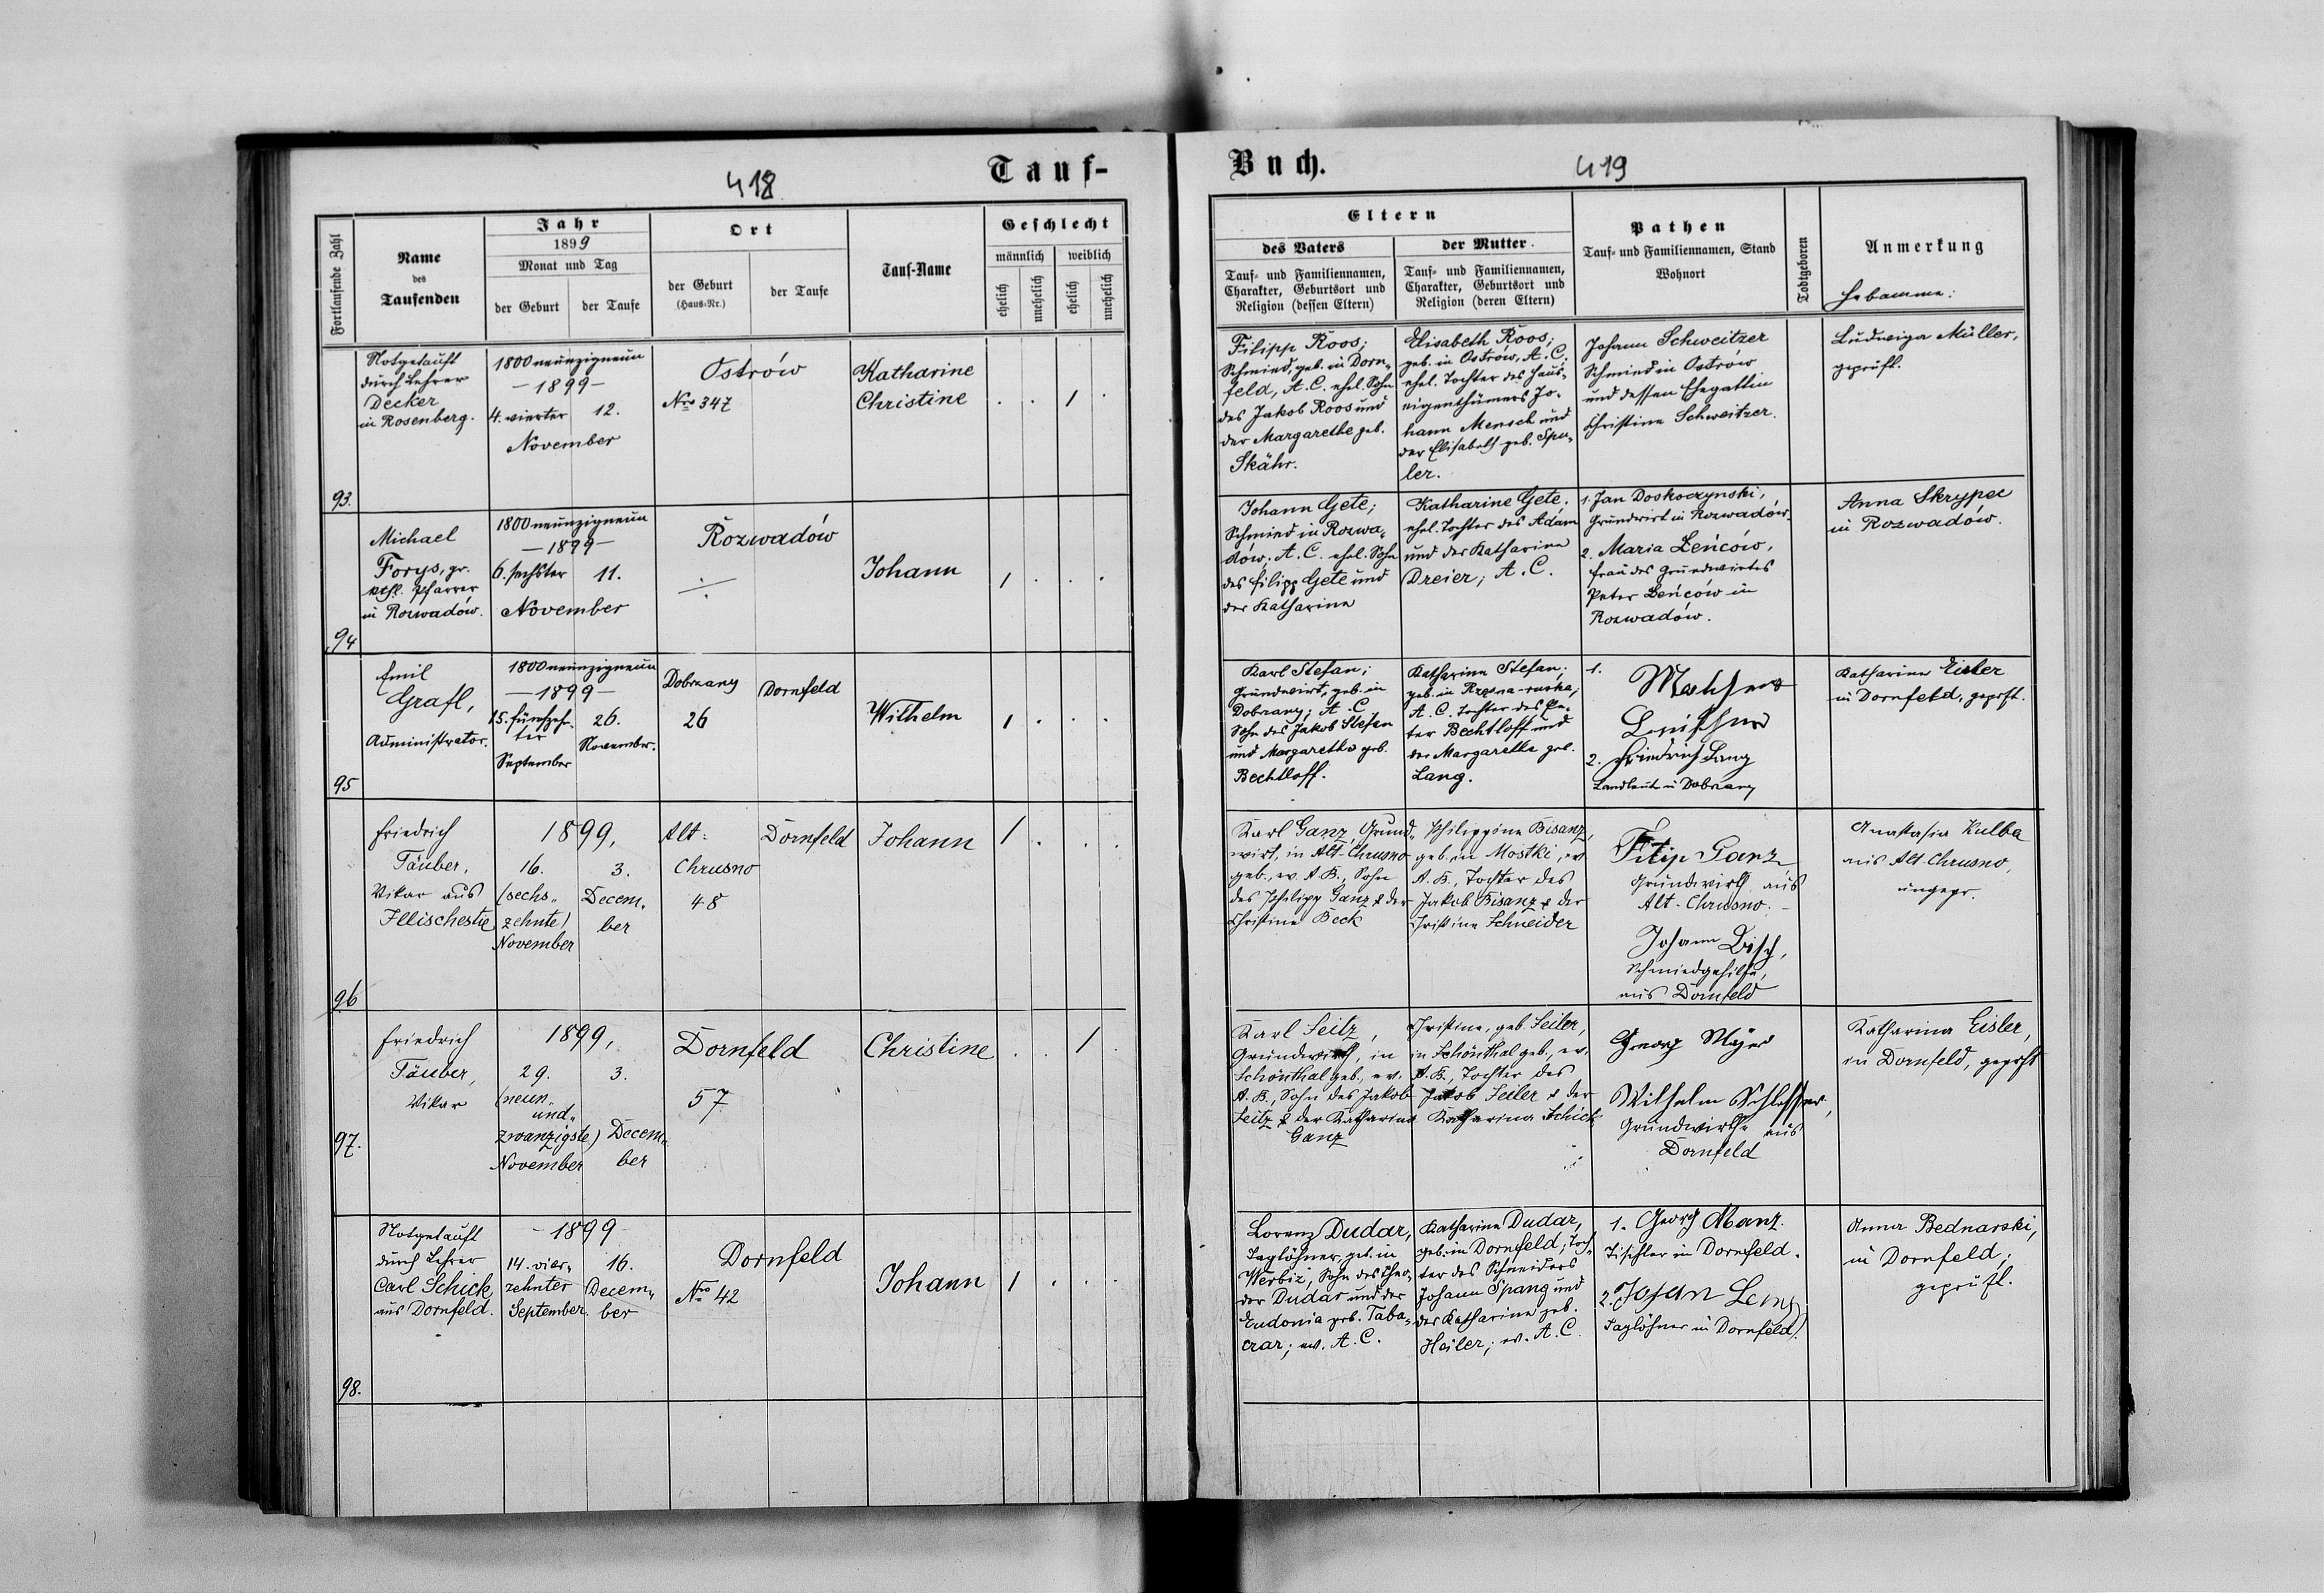 418
Tauf-
Fortlaufende Zahl
Name
des
Taufenden
Jahr
1899
Monat und Tag
der Geburt
der Taufe
Ort
der Geburt
(Haus-Nr.)
der Taufe
Tauf-Name
Geschlecht
männlich
weiblich
ehelich
unehelich
ehelich
unehelich
93.
Notgetauft
durch Lehrer
Decker
in Rosenberg.
1800 neunzigneun
- 1899 -
4. vierter
12.
November
Ostrów
Nro 347
Katharine
Christine
. . 1 .
94
Michael
Forys, gr.
kth. Pfarrer
in Rozwadów.
1800 neunzigneun
- 1899 -
6. sechster
11.
November
Rozwadów
Johann
1 . . .
95
Emil
Grafl,
Administrator.
1800 neunzigneun
- 1899 -
15. fünfzehn-
ter
September
26.
November.
Dobrzany
26
Dornfeld
Wilhelm
1 . . .
96
Friedrich
Täuber,
Vikar aus
Illischestie
1899,
16.
(sechs-
zehnte)
November
3.
Decem-
ber
Alt-
Chrusno
48
Dornfeld
Johann
1 . . .
97.
Friedrich
Täuber,
Vikar
1899,
29.
(neun-
und-
zwanzigste)
November
3.
Decem-
ber
Dornfeld
57
Christine
. . 1 .
98.
Notgetauft
durch Lehrer
Carl Schick
aus Dornfeld.
- 1899 -
14. vier-
zehnter
September.
16.
Decem-
ber
Dornfeld
Nro 42
Johann
1 . . .
Buch.
419
Eltern
des Vaters
Tauf- und Familiennamen,
Charakter, Geburtsort und
Religion (dessen Eltern)
der Mutter.
Tauf- und Familiennamen,
Charakter, Geburtsort und
Religion (deren Eltern)
Pathen
Tauf- und Familiennamen, Stand
Wohnort
Todtgeboren
Anmerkung
Hebamme:
Filipp Roos;
Schmied, geb. in Dorn-
feld, A. C. ehel. Sohn
des Jakob Roos und
der Margarethe geb.
Skähr.
Elisabeth Roos;
geb. in Ostrów, A. C.
ehel. Tochter des Haus-
eigenthümers Jo-
hann Mensch und
der Elisabeth geb. Spu-
ler.
Johann Schweitzer
Schmied in Ostrów
und dessen Ehegattin
Christine Schweitzer.
Ludwiga Müller,
geprüft.
Johann Gete;
Schmied in Rozwa-
dów; A. C. ehel. Sohn
des Filipp Gete und
der Katharine
Katharine Gete.
ehel. Tochter des Adam
und der Katharine
Dreier; A. C.
1. Jan Doskoczynski,
Grundwirt in Rozwadów.
2. Maria Leńców,
Frau des Grundwirtes
Peter Leńców in
Rozwadów.
Anna Skrypec
in Rozwadów.
Karl Stefan;
Grundwirt, geb. in
Dobrzany; A. C
Sohn des Jakob Stefan
und Margarethe geb.
Bechtloff.
Katharine Stefan;
geb. in Rzęsna-ruska;
A. C. Tochter des Pe-
ter Bechtloff und
der Margarethe geb.
Lang.
1.
2. Friedrich Lang
Landleute in Dobrzany
Katharine Eisler
in Dornfeld, geprft.
Karl Ganz, Grund-
wirt, in Alt-Chrusno
geb., ev. A. B., Sohn
des Philipp Ganz & der
Christine Beck
Philippine Bisanz,
geb. in Mostki, ev
A. B., Tochter des
Jakob Bisanz & der
Christine Schneider
Filip Ganz
Grundwirth aus
Alt-Chrusno. -
Johann Bisch,
Schmiedgehilfe,
aus Dornfeld
Anastasia Kulba
aus Alt-Chrusno,
ungepr.
Karl Seitz,
Grundwirth, in
Schönthal geb., ev.
A. B., Sohn des Jakob
Seitz & der Katharina
Ganz
Christine, geb. Seiler,
in Schönthal geb., ev.
A. B., Tochter des
Jakob Seiler & der
Katharina Schick
Georg Mayer
Wilhelm Schlosser,
Grundwirthe aus
Dornfeld
Katharina Eisler,
in Dornfeld, geprft
Lorenz Dudar,
Taglöhner, geb. in
Werbiz, Sohn des Theo-
dor Dudar und der
Eudonia geb. Taba-
crar; ev. A. C.
Katharine Dudar,
geb. in Dornfeld; Toch-
ter des Schneiders
Johann Spang und
der Katharine geb.
Heiler; ev. A. C.
1. Georg Manz.
Tischler in Dornfeld.
2. Johan Lang
Taglöhner in Dornfeld.
Anna Bednarski,
in Dornfeld;
geprüft.